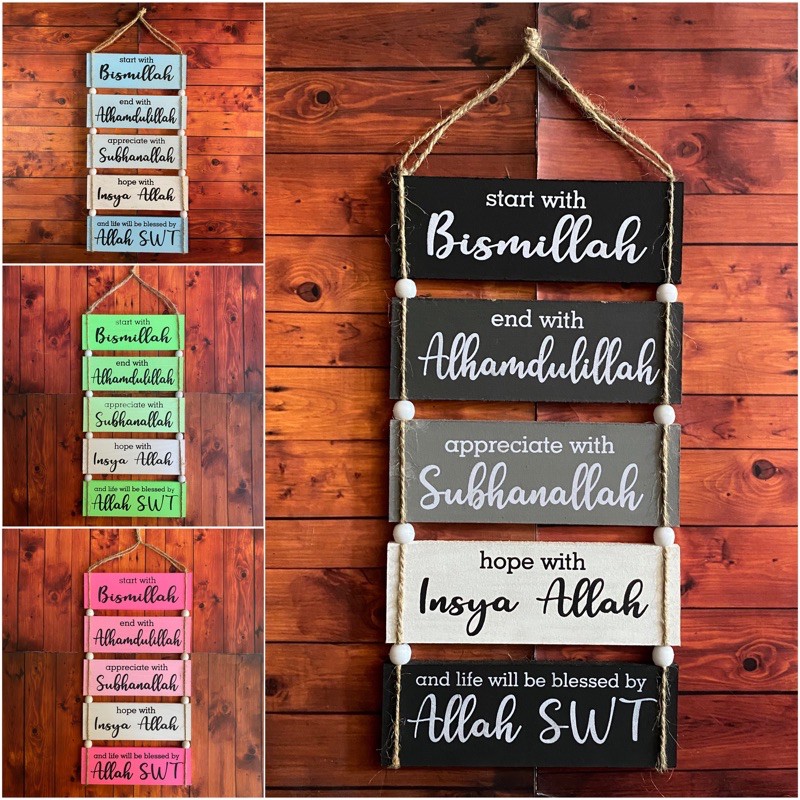 start with
Bismillah
end with
Alhamdulillah
appreciate with
Subhanallah
hope with
Insya Allah
and life will be blessed by
Allah SWT
start with
Bismillah
end with
Alhamdulillah
appreciate with
Subhanallah
hope with
Insya Allah
and life will be blessed by
Allah SWT
start with
Bismillah
end with
Alhamdulillah
appreciate with
Subhanallah
hope with
Insya Allah
and life will be blessed by
Allah SWT
start with
Bismillah
end with
Alhamdulillah
appreciate with
Subhanallah
hope with
Insya Allah
and life will be blessed by
Allah SWT